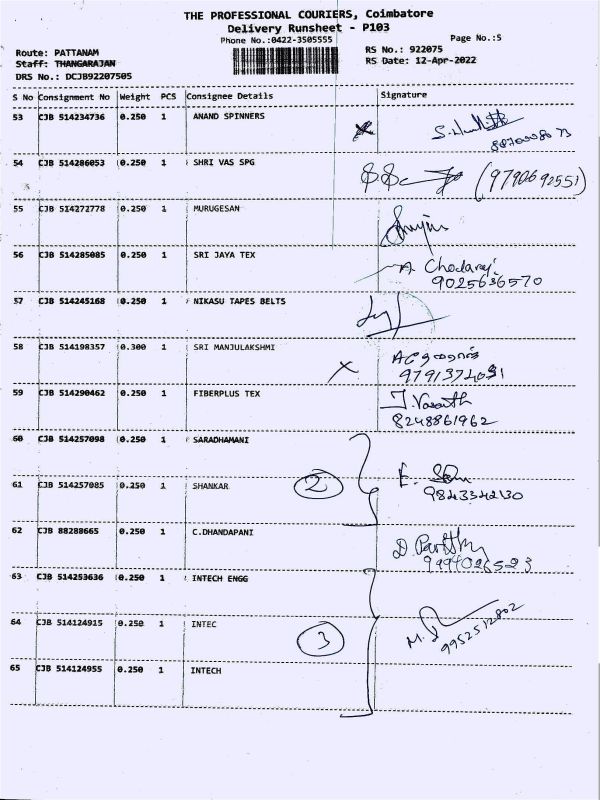 THE PROFESSIONAL COURIERS, Coimbatore
Delivery Runsheet - P103
Phone No.:0422-3505555
Page No.:5
Route: PATTANAM
RS No.: 922075
Staff: THANGARAJAN
RS Date: 12-Apr-2022
DRS No.: DCJB92207505
S No Consignment No Weight PCS Consignee Details Signature
53 CJB 514234736 0.250 1 ANAND SPINNERS
54 CJB 514286053 0.250 1 SHRI VAS SPG
(9790692551)
55 CJB 514272778 0.250 1 MURUGESAN
56 CJB 514285085 0.250 1 SRI JAYA TEX
9025636570
57 CJB 514245168 0.250 1 NIKASU TAPES BELTS
58 CJB 514198357 0.300 1 SRI MANJULAKSHMI
X
59 CJB 514290462 0.250 1 FIBERPLUS TEX
J. Vasanth
8248861962
60 CJB 514257098 0.250 1 SARADHAMANI
61 CJB 514257085 0.250 1 SHANKAR
2
9843342130
62 CJB 88288665 0.250 1 C.DHANDAPANI
63 CJB 514253636 0.250 1 INTECH ENGG
64 CJB 514124915 0.250 1 INTEC
3
9952512802
65 CJB 514124955 0.250 1 INTECH